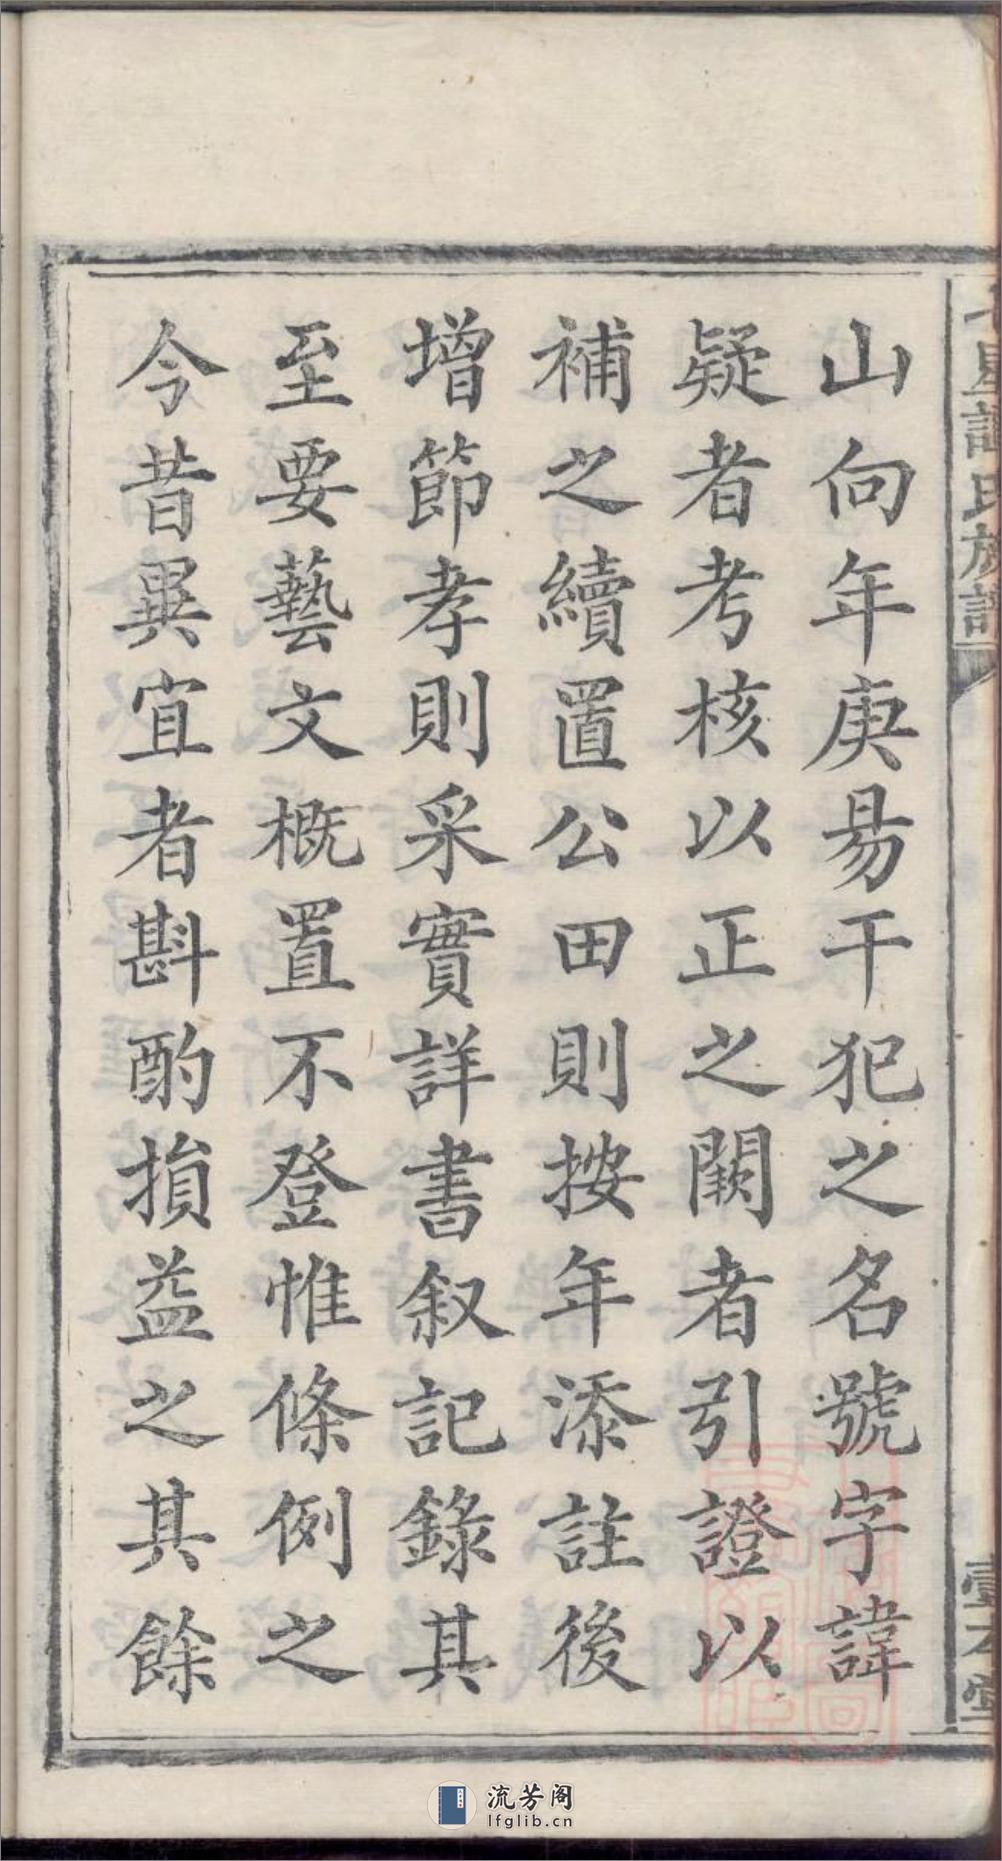 山向年庚易干犯之名號字諱
疑者考核以正之闕者引證以
補之續置公田則按年添註後
增節孝則采實詳書叙記錄其
至要藝文概置不登惟條例之
今昔異宜者斟酌損益之其餘
氏族譜
流芳阁
lfglib.cn